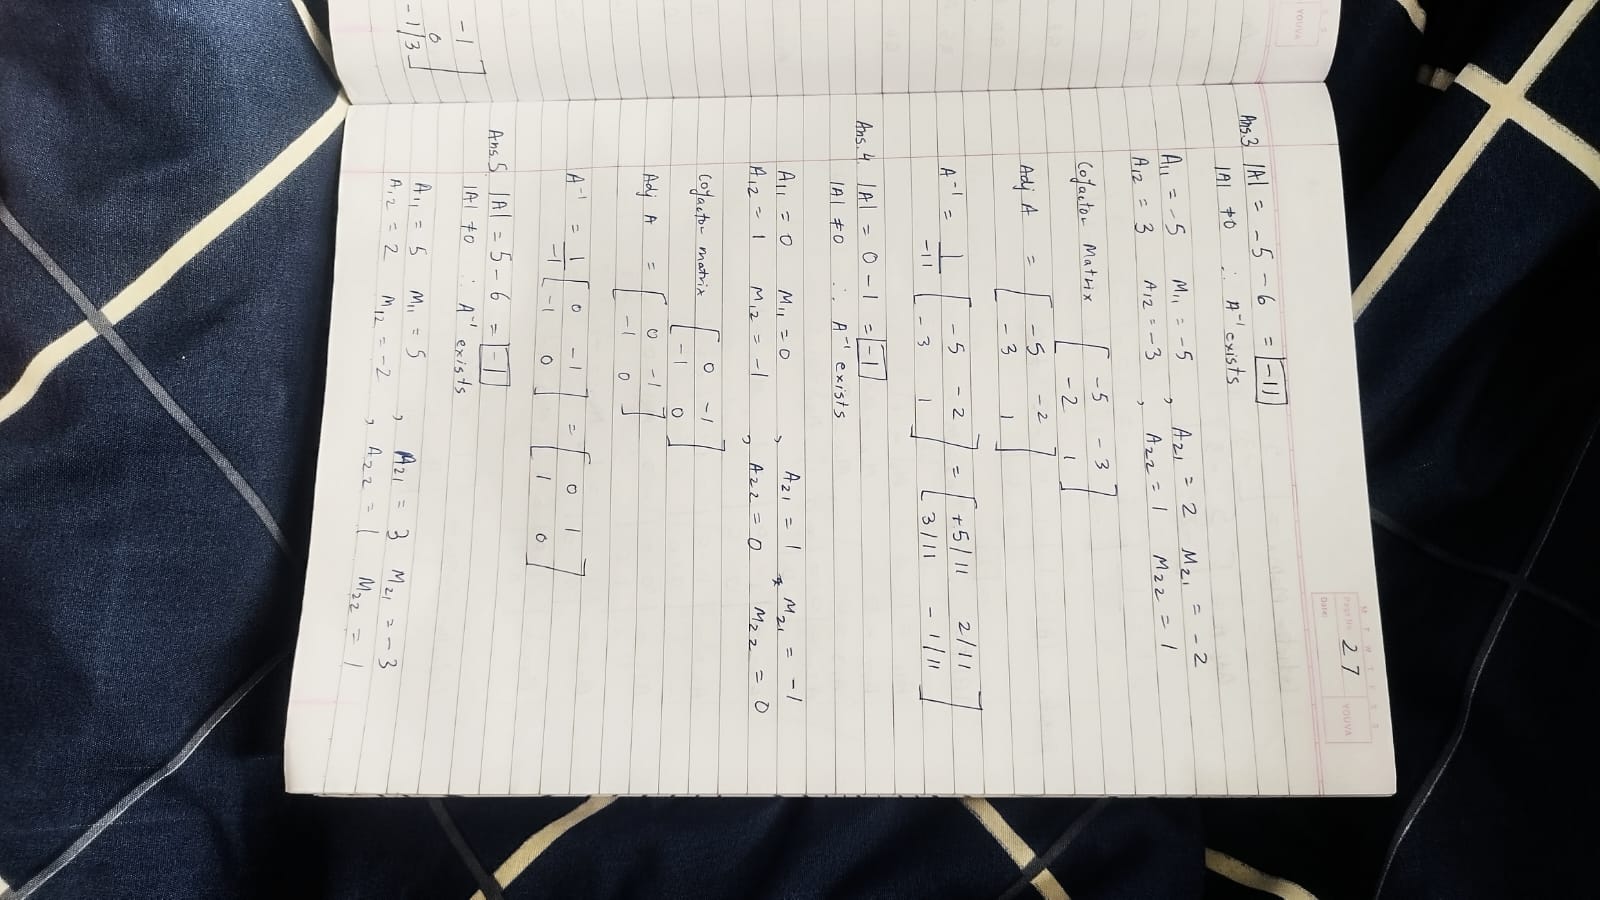 S S
YOUVA
M T W T F S S
Page No. 27
YOUVA
Date:
Ans.3 |A| = -5 - 6 = -11
|A| ≠0 ∴ A⁻¹ exists
A₁₁ = -5 M₁₁ = -5 , A₂₁ = 2 M₂₁ = -2
A₁₂ = 3 A₁₂ = -3 , A₂₂ = 1 M₂₂ = 1
Cofactor Matrix [ -5 -3 ]
[ -2 1 ]
Adj A = [ -5 -2 ]
[ -3 1 ]
A⁻¹ = 1/-11 [ -5 -2 ] = [ +5/11 2/11 ]
[ -3 1 ] [ 3/11 -1/11 ]
Ans.4 |A| = 0 - 1 = -1
|A| ≠0 ∴ A⁻¹ exists
A₁₁ = 0 M₁₁ = 0 , A₂₁ = 1 M₂₁ = -1
A₁₂ = 1 M₁₂ = -1 , A₂₂ = 0 M₂₂ = 0
Cofactor matrix [ 0 -1 ]
[ -1 0 ]
Adj A = [ 0 -1 ]
[ -1 0 ]
A⁻¹ = 1/-1 [ 0 -1 ] = [ 0 1 ]
[ -1 0 ] [ 1 0 ]
Ans.5 |A| = 5 - 6 = -1
|A| ≠0 ∴ A⁻¹ exists
A₁₁ = 5 M₁₁ = 5 , A₂₁ = 3 M₂₁ = -3
A₁₂ = 2 M₁₂ = -2 , A₂₂ = 1 M₂₂ = 1
-1
0
-1/3